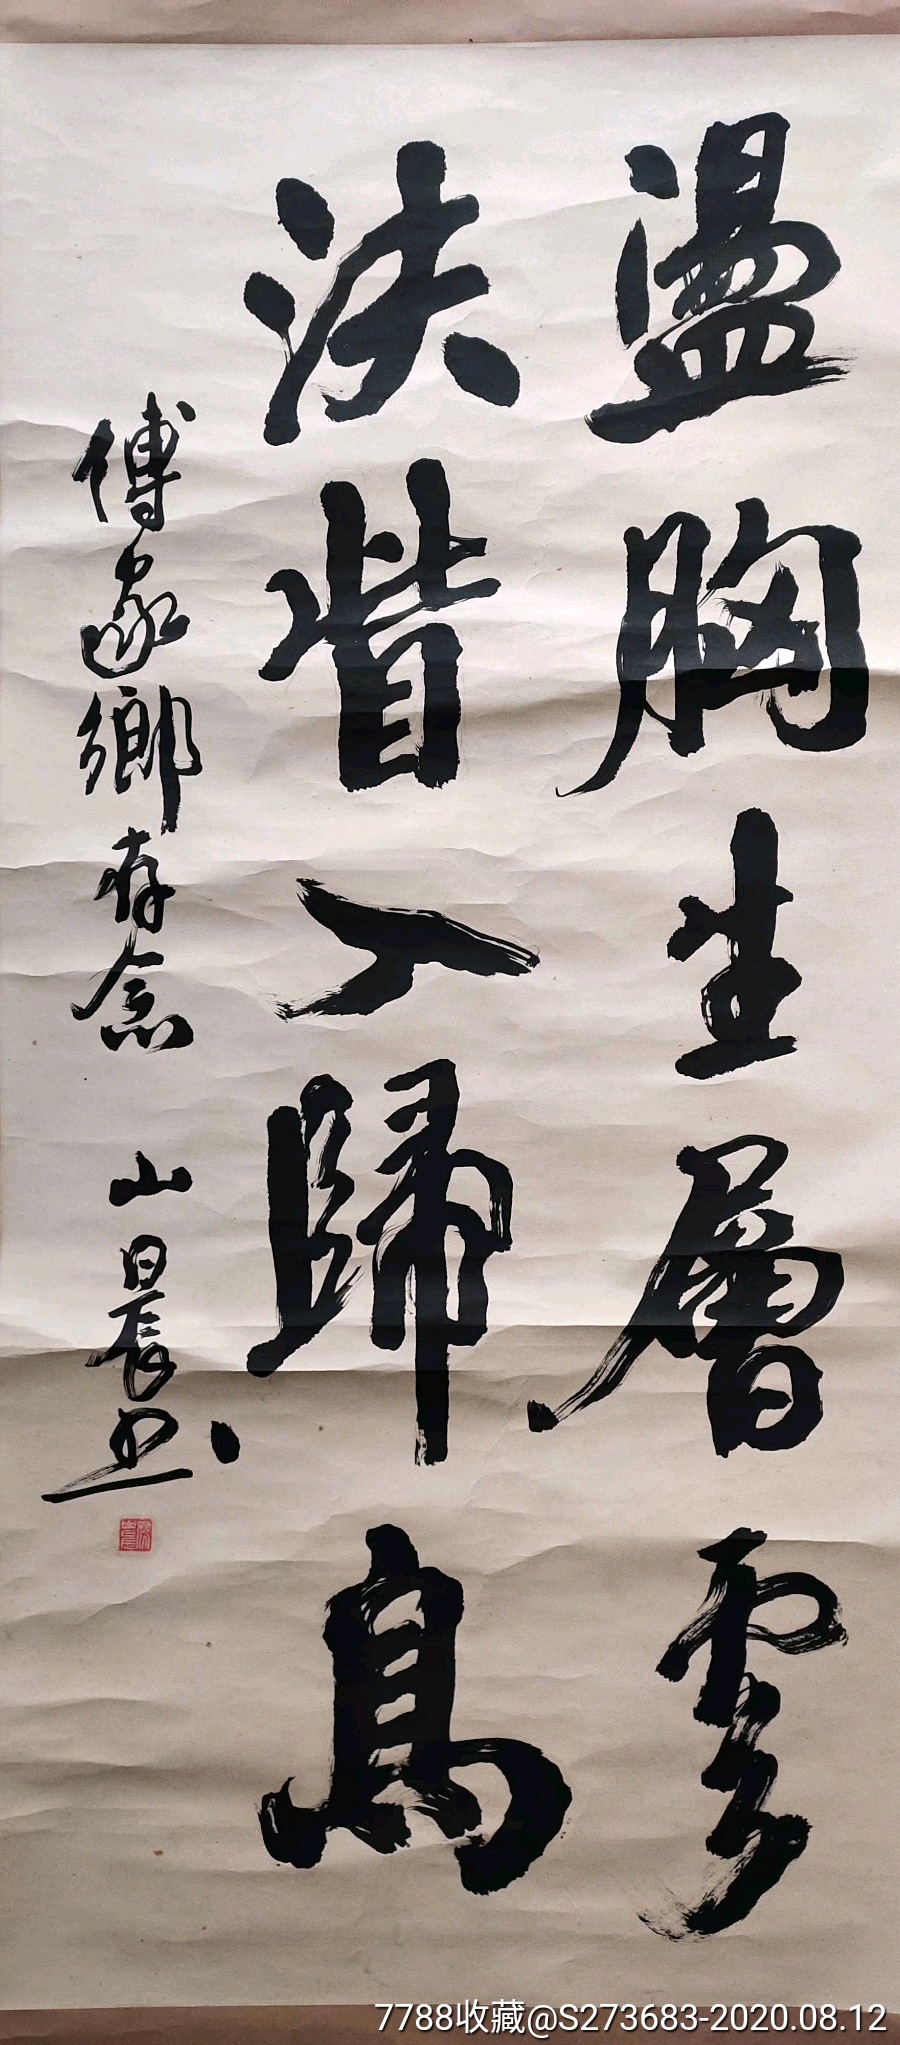 盪胸生層雲
決眥入歸鳥
傅家鄉存念 山晨书
7788收藏@S273683-2020.08.12